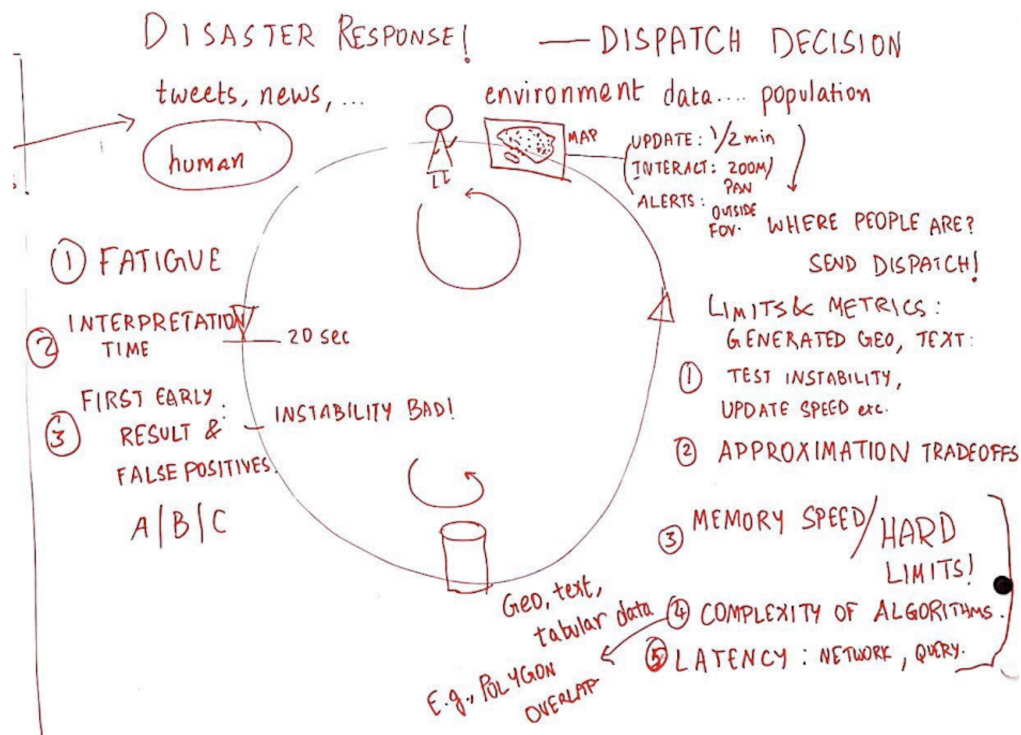 DISASTER RESPONSE! — DISPATCH DECISION
tweets, news, ...
human
environment data.... population
MAP
UPDATE: 1/2 min
INTERACT: ZOOM/
PAN
ALERTS: OUTSIDE
FOV.
WHERE PEOPLE ARE?
SEND DISPATCH!
① FATIGUE
② INTERPRETATION
TIME
20 sec
③ FIRST EARLY
RESULT &
FALSE POSITIVES.
: INSTABILITY BAD!
A|B|C
LIMITS & METRICS:
GENERATED GEO, TEXT:
① TEST INSTABILITY,
UPDATE SPEED etc.
② APPROXIMATION TRADEOFFS
③ MEMORY SPEED/HARD
LIMITS!
④ COMPLEXITY OF ALGORITHMS.
⑤ LATENCY: NETWORK, QUERY.
Geo, text,
tabular data
E.g., POLYGON
OVERLAP